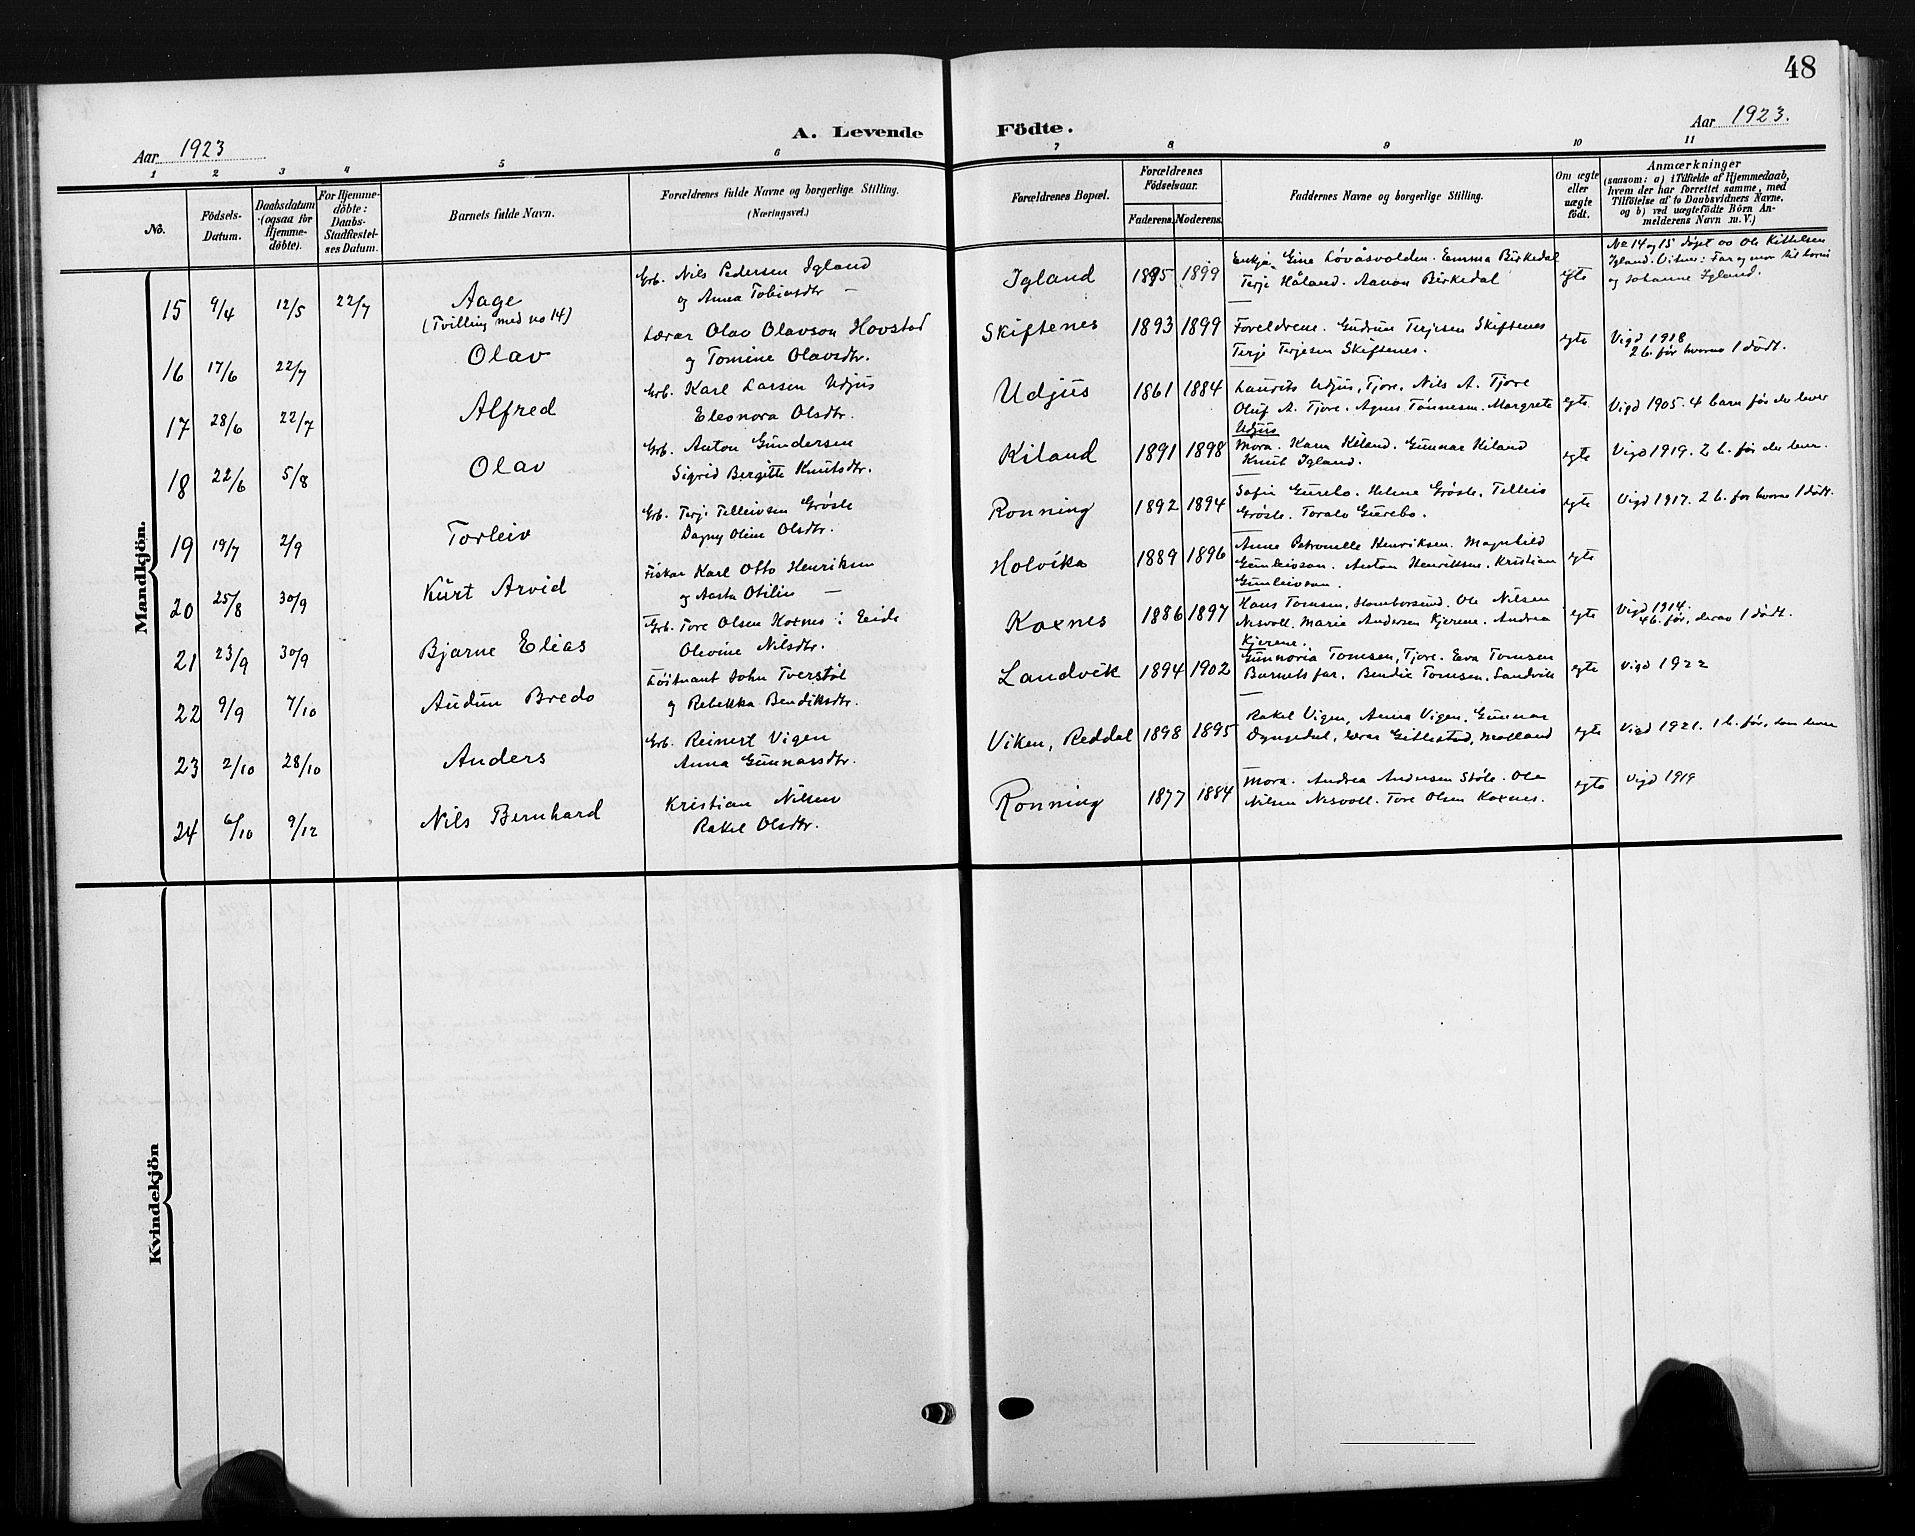 48
Aar 1923
A. Levende Födte.
Aar 1923.
1 2 3 4 5 6 7 8 9 10 11
No.
Födsels-
Datum.
Daabsdatum
(ogsaa for
Hjemme-
döbte).
For Hjemme-
döbte:
Daabs-
Stadfæstel-
ses Datum.
Barnets fulde Navn.
Forældrenes fulde Navne og borgerlige Stilling.
(Næringsvei.)
Forældrenes Bopæl.
Forældrenes
Födselsaar.
Faderens. Moderens.
Faddernes Navne og borgerlige Stilling.
Om ægte
eller
uægte
födt.
Anmærkninger
(saasom: a) i Tilfælde af Hjemmedaab,
hvem der har forrettet samme, med
Tilföielse af to Daabsvidners Navne,
og b) ved uægtefödte Börn An-
melderens Navn m. V.)
Mandkjön.
15 9/4 12/5 22/7 Aage
(Tvilling med no 14)
Grb. Nils Pedersen Igland
og Anna Tobiasdtr —
Igland 1895 1899
Enkja Gina Lövåsvolden. Emma Birkedal
Terje Håland. Aanon Birkedal
egte
No 14 og 15 döpt av Ole Kittelsen
Igland. Vitner: Far og mor til borni
og Johanne Igland.
16 17/6 22/7 Olav
Lærar Olav Olavson Hovstad
og Tomine Olavsdtr.
Skiftenes 1893 1899
Foreldrene. Gudrun Terjesen Skiftenes
Terje Terjesen Skiftenes.
egte
Vigd 1918
2 b. før hvorav 1 dödt.
17 28/6 22/7 Alfred
Grb. Karl Larsen Udjus
Eleonora Olsdtr.
Udjus 1861 1884
Laurits Udjus, Tjore, Nils A. Tjore
Oluf A. Tjore. Agnes Tönnesen. Margrete
Udjus
egte
Vigd 1905. 4 barn før de lever
18 22/6 5/8 Olav
Grb. Anton Gundersen
Sigrid Bergitte Knutsdtr.
Kiland 1891 1898
Mora. Karen Kiland. Gunnar Kiland
Knut Igland.
egte
Vigd 1919. 2 b. før de lever.
19 19/7 2/9 Torleiv
Grb. Terje Telleivsen Grösle
Dagny Oline Olsdtr.
Ronning 1892 1894
Sofie Gurebo. Helene Grösle. Telleiv
Grösle. Toralv Gurebo.
egte
Vigd 1917. 2 b. før hvorav 1 dödt.
20 25/8 30/9 Kurt Arvid
Fiskar Karl Otto Henriksen
og Aasta Otilie —
Holvika 1889 1896
Anna Petronelle Henriksen. Magnhild
Gunleivson. Anton Henriksen. Kristian
Gunleivson.
egte
21 23/9 30/9 Bjarne Elias
Grb. Tore Olsen Koxnes i Eide
Olevine Nilsdtr.
Koxnes 1886 1897
Hans Tomsen, Homborsund. Ole Nilsen
Nesvoll. Marie Andersen Kjerene. Andrea
Kjerene.
egte
Vigd 1914.
4 b. før, derav 1 dödt.
22 9/9 7/10 Audun Bredo
Löitnant John Tverstöl
og Rebekka Bendiksdtr.
Landvik 1894 1902
Gunnoria Tomsen, Tjore. Eva Tomsen
Barnets far. Bendix Tomsen, Landvik
egte
Vigd 1922
23 2/10 28/10 Anders
Grb. Reinert Vigen
Anna Gunnarsdtr.
Viken, Reddal 1898 1895
Rakel Vigen, Anna Vigen. Gunnar
egte
Vigd 1921. 1 b. før, som lever
24 6/10 9/12 Nils Bernhard
Kristian Nilsen
Rakel Olsdtr.
Ronning 1877 1884
Mora. Andrea Andersen Stöle. Ole
Nilsen Nesvoll. Tore Olsen Koxnes.
egte
Vigd 1919
Kvindekjön